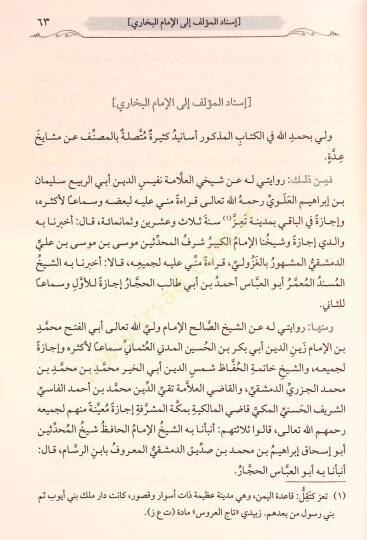 [إسناد المؤلف إلى الإمام البخاري]
٦٣
[إسناد المؤلف إلى الإمام البخاري]
ولي بحمدِ الله في الكتابِ المذكور أسانيدُ كثيرةٌ مُتَّصلةٌ بالمصنِّف عن مشايخَ
عِدَّةٍ.
فمِن ذلك: روايتي له عن شيخي العلَّامة نفيسِ الدين أبي الربيع سليمانَ
بن إبراهيم العَلَويِّ رحمهُ الله تعالى قراءةً مني عليه لبعضه وسماعاً لأكثره،
وإجازةً في الباقي بمدينة تَعِزَّ(١) سنةَ ثلاث وعشرين وثمانمائة، قال: أخبرنا به
والدي إجازةً وشيخُنا الإمامُ الكبيرُ شرفُ المحدِّثين موسى بن موسى بن عليٍّ
الدمشقيُّ المشهورُ بالغَزُوليِّ، قراءةً منِّي عليه لجميعِه، قالا: أخبرنا به الشيخُ
المُسنِدُ المُعمَّرُ أبو العبَّاس أحمدُ بن أبي طالب الحجَّارُ إجازةً للأوَّلِ وسماعاً
للثاني.
ومنها: روايتي له عن الشيخِ الصَّالح الإمامِ وليِّ الله تعالى أبي الفتح محمَّدِ
بن الإمام زَينِ الدين أبي بكر بن الحُسين المدني العُثمانيِّ سماعاً لأكثره وإجازةً
لجميعه، والشيخِ خاتمةِ الحُفَّاظ شمسِ الدين أبي الخير محمَّدِ بن محمَّدِ بن
محمد الجزري الدمشقيِّ، والقاضي العلَّامة تقيِّ الدِّين محمَّد بن أحمد الفاسيِّ
الشريف الحَسنيِّ المكيِّ قاضي المالكيةِ بمكَّة المشرَّفةِ إجازةً مُعيَّنةً منهم لجميعه
رحمهم الله تعالى، قالوا ثلاثتهم: أنبأنا به الشيخُ الإمام الحافظُ شيخُ المُحدِّثين
أبو إسحاق إبراهيمُ بن محمد بن صدِّيق الدمشقيُّ المعروفُ بابنِ الرسَّام، قال:
أنبأنا به أبو العبَّاس الحجَّارُ.
(١) تعز كتَقِلُّ: قاعدة اليمن، وهي مدينة عظيمة ذات أسوار وقصور، كانت دار ملك بني أيوب ثم
بني رسول من بعدهم. زبيدي «تاج العروس» مادة (ت ع ز).